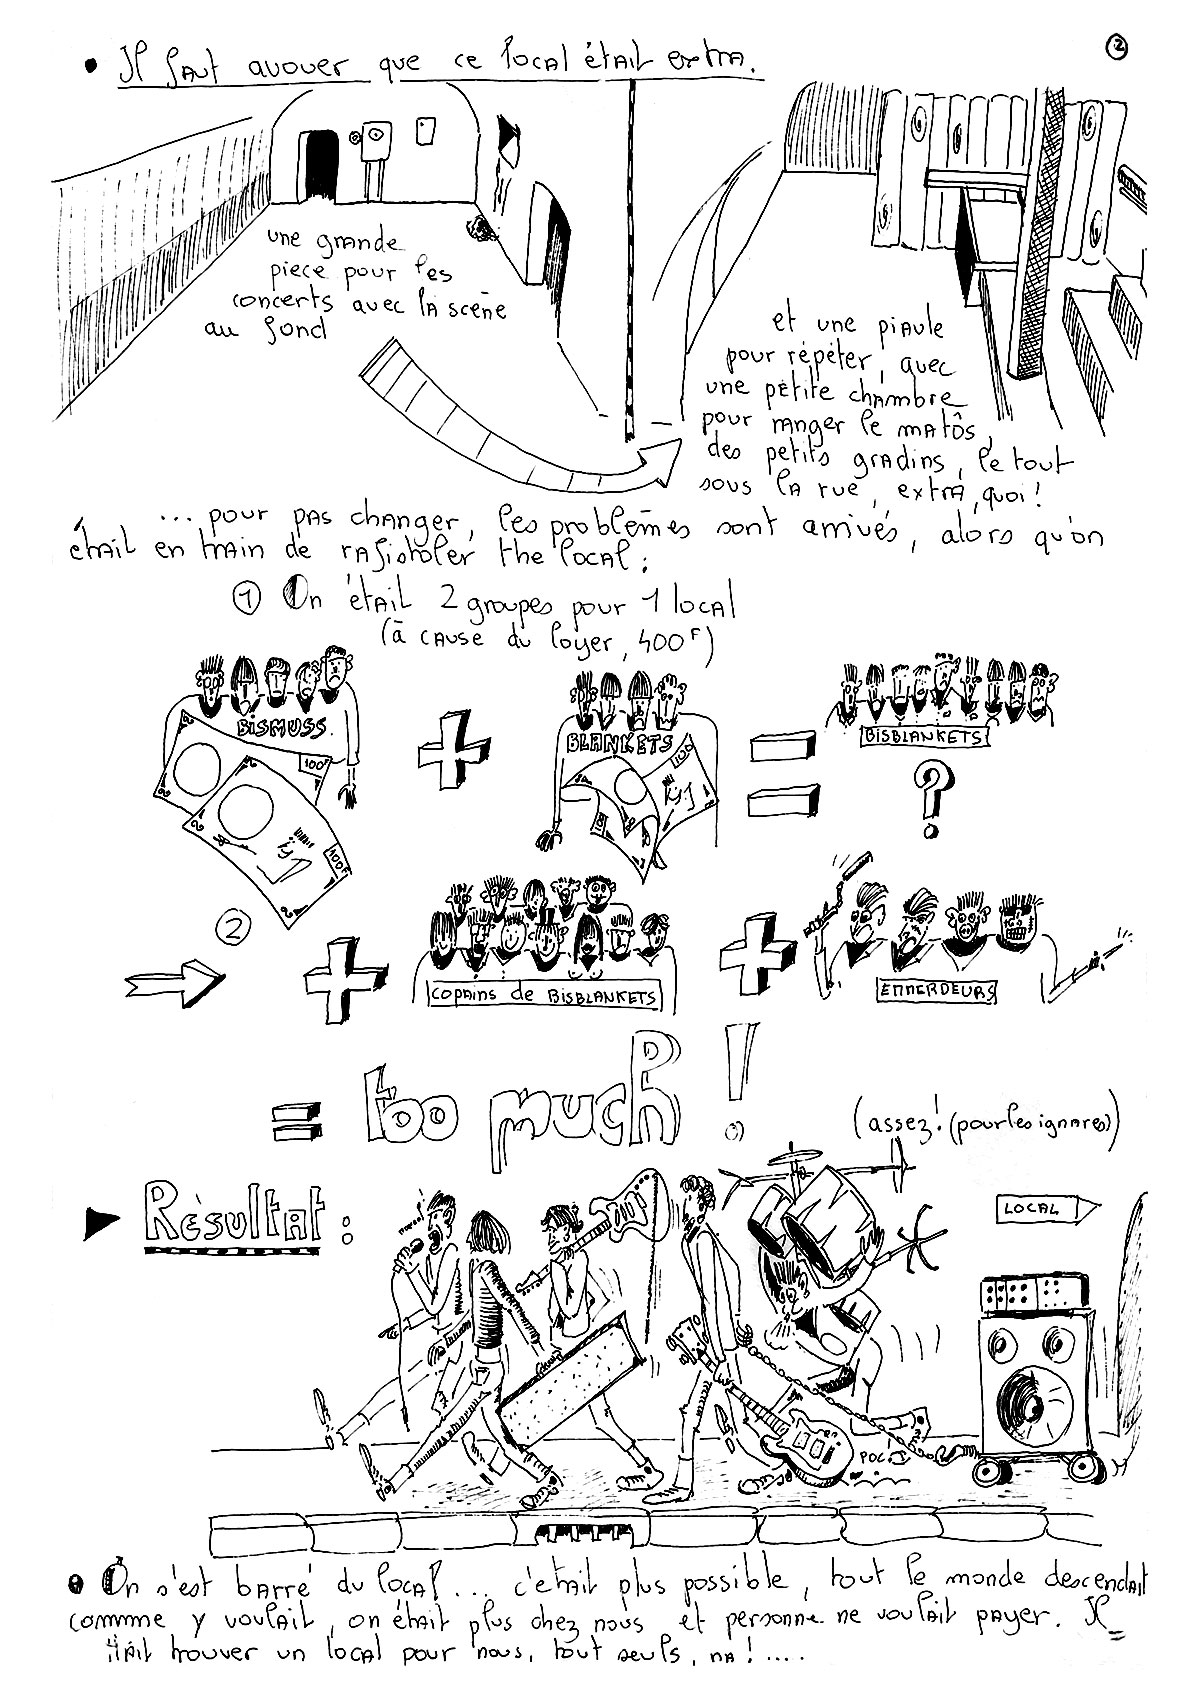 ②
• Il faut avouer que ce local était extra.
une grande
piece pour les
concerts avec la scène
au fond
et une piaule
pour répéter, avec
une pétite chambre
pour ranger le matôs,
des petits gradins, le tout
sous la rue, extra, quoi!
... pour pas changer, les problêmes sont arrivés, alors qu'on
était en train de rafistoler the local:
① On était 2 groupes pour 1 local
(à cause du loyer, 400F)
BISMUSS.
100F
100F
+
BLANKETS
100
=
BISBLANKETS
?
②
+
copains de BISBLANKETS
+
EMMERDEURS
= too much!
(assez! (pour les ignares))
Résultat:
LOCAL
POC!
• On s'est barré du local... c'etait plus possible, tout le monde descendait
commme y voulait, on était plus chez nous et personne ne voulait payer. Il
fallait trouver un local pour nous, tout seuls, na!....